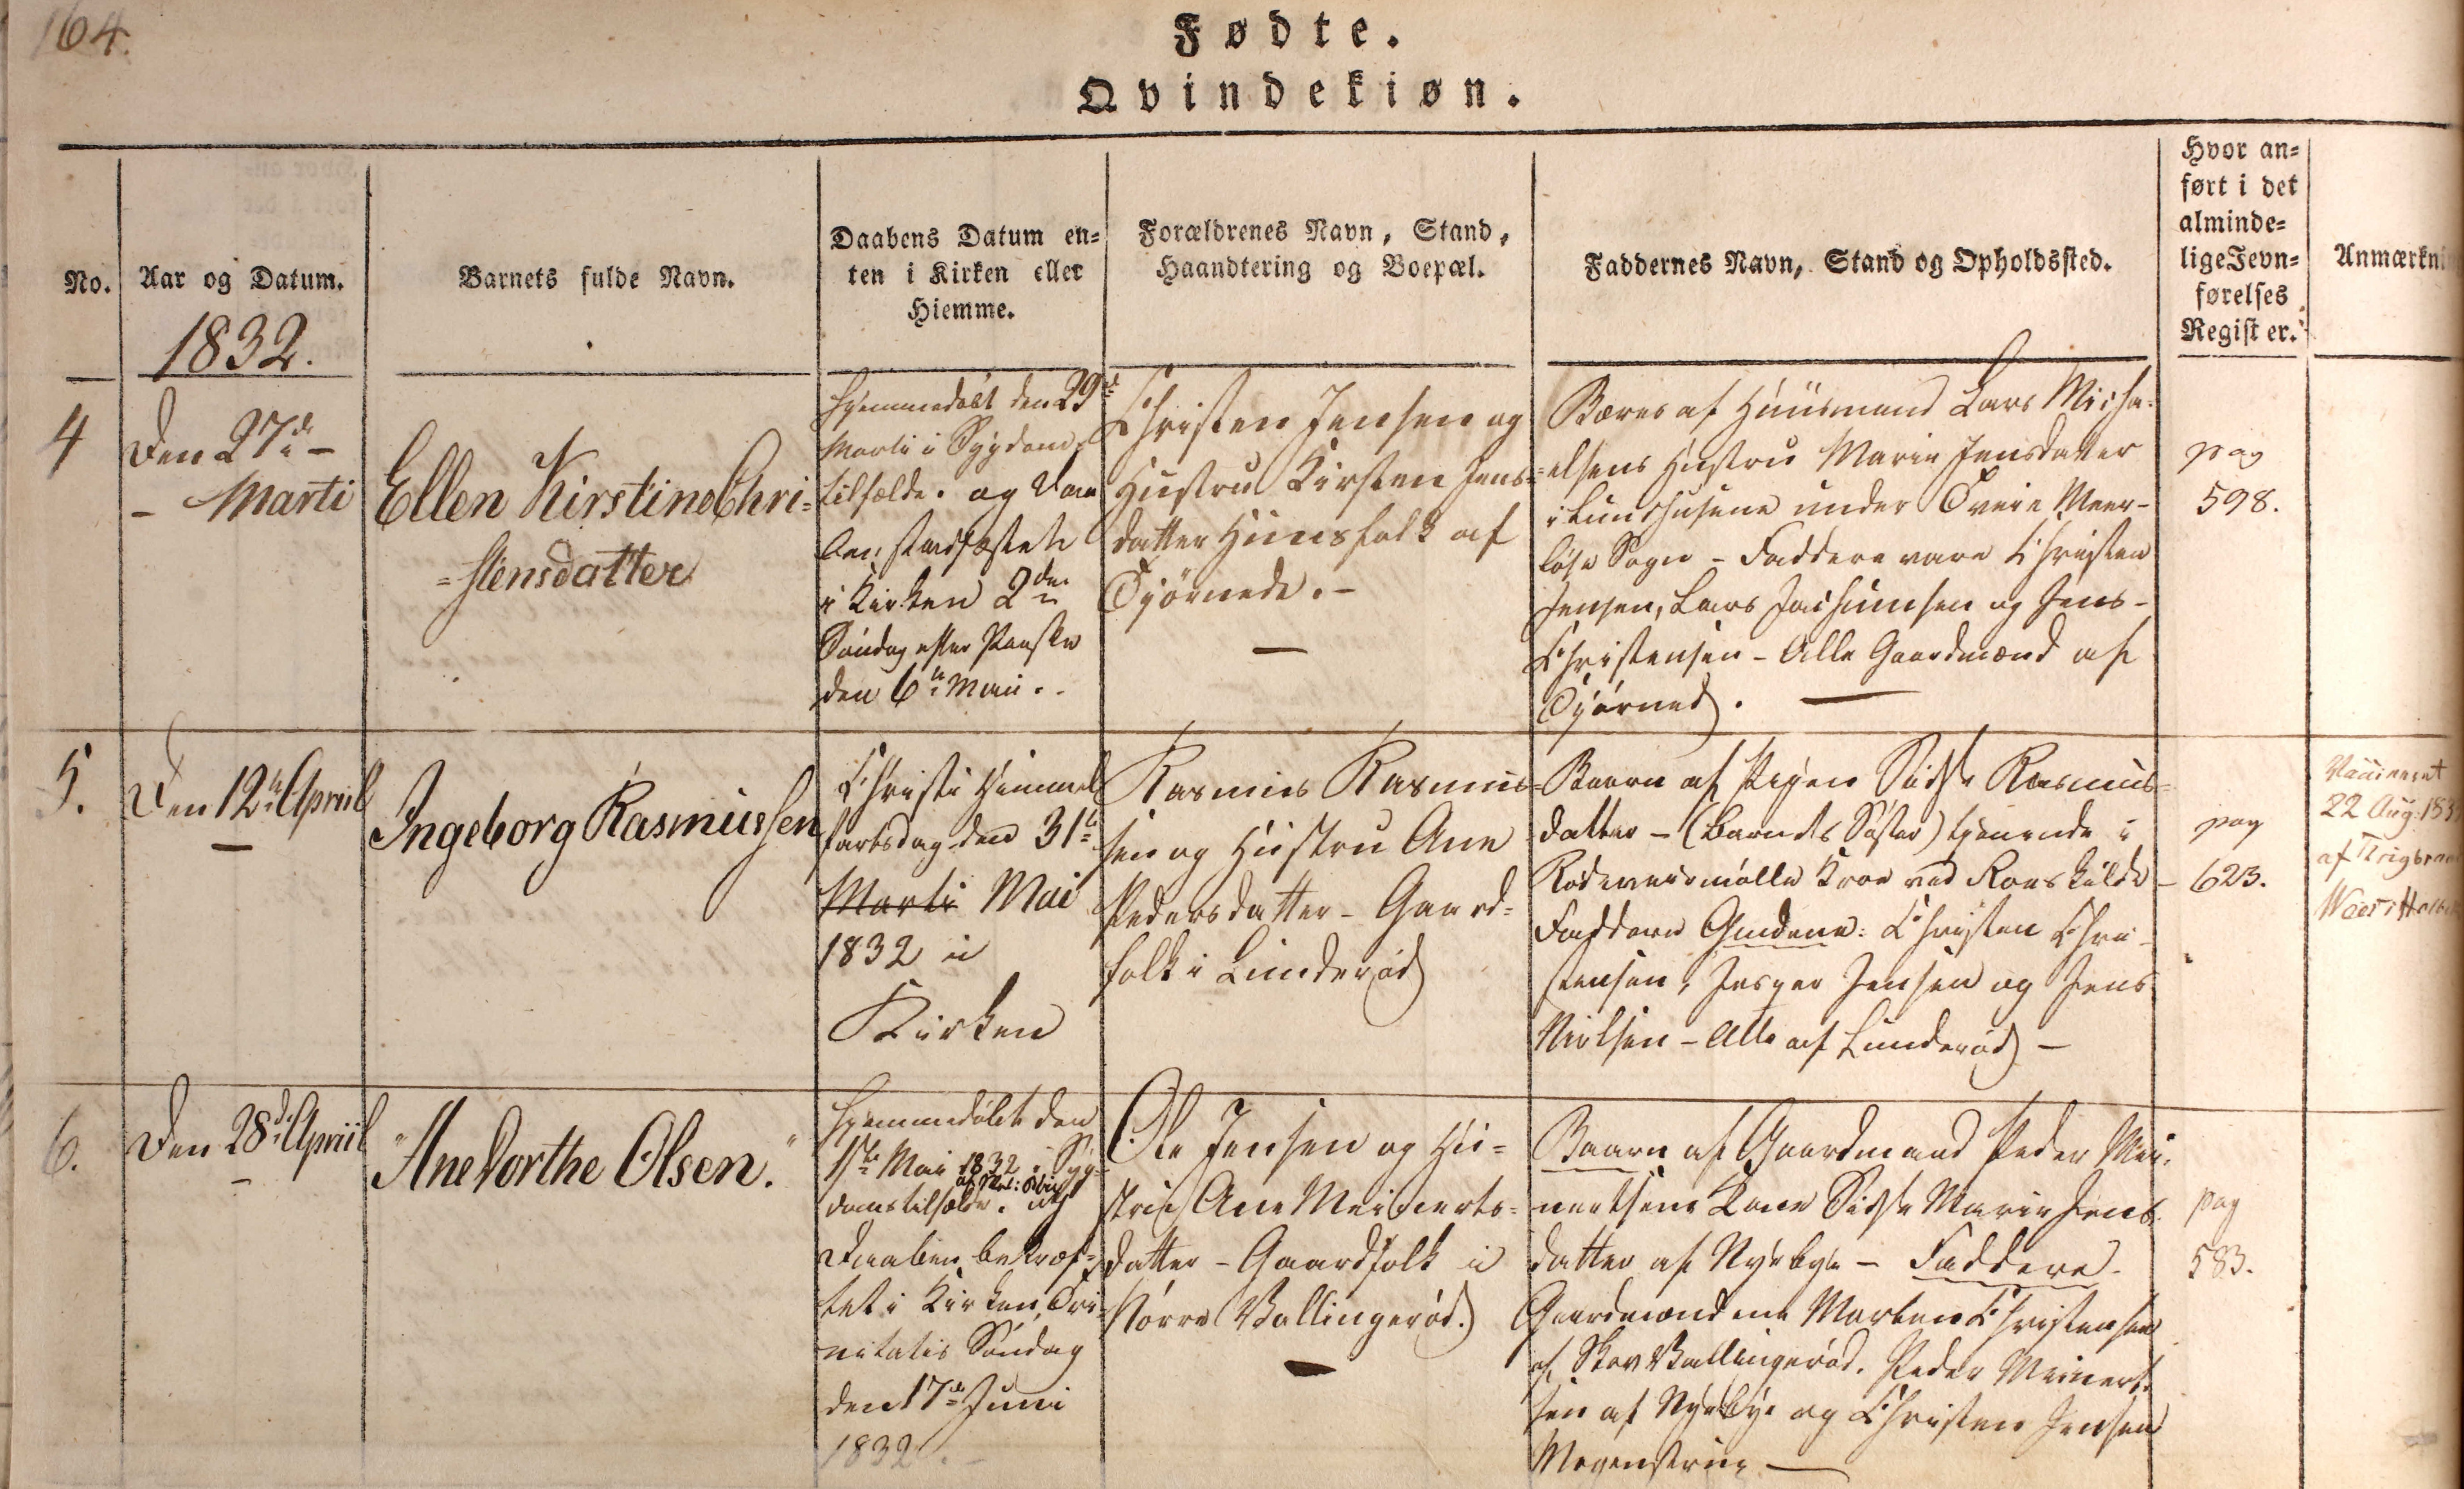 164.
Fødte.
Qvindekiøn.
No.
Aar og Datum.
1832.
Barnets fulde Navn.
Daabens Datum en=
ten i Kirken eller
Hiemme.
Forældrenes Navn, Stand,
Haandtering og Boepæl.
Faddernes Navn, Stand og Opholdssted.
Hvor an=
ført i det
alminde=
lige Jevn=
førelses
Register.
Anmærkni
4
Den 27de –
– Marti
Ellen Kirstine Chri=
=stensdatter
Hjemmedøbt den 29de
Marti i Sygdoms
tilfælde. og Daa
ben stadfæstet
i Kirken 2den
Søndag efter Paaske
den 6te Maii.
Christen Jensen og
Hustru Kirsten Jens=
datter Huusfolk af
Tjørnede. –
Bæres af Huusmand Lars Micha=
=elsens Hustru Marie Jensdatter
i Lundhusene under Tveie Meer-
løse Sogn – Faddere vare Christen
Jensen, Lars Jochumsen og Jens –
Christensen – Alle Gaardmænd af
Tjørned. —
pag
598.
5.
Den 12te Apriil
Ingeborg Rasmussen
Christi Himmel
fartsdag den 31te
Marti Mai
1832 i
Kirken
Rasmus Rasmus=
sen og Hustru Ane
Pedersdatter – Gaard=
folk i Lunderød
Baaren af Pigen Sidse Rasmus=
datter – (Barnets Søster) tjenende i
Kroe ved Roeskilde –
Faddere Gaardmændene: Christen Chri-
stensen, Jesper Jensen og Jens
Nielsen – Alle af Lunderød –
pag
623.
Vaccineret
22 Aug: 183
af
6.
Den 28de Apriil
"Ane Dorthe Olsen."
Hjemmedøbt den
1ste Mai 1832 i Syg=
domstilfælde. og
Daaben bekræf=
tet i Kirken Tri=
nitatis Søndag
den 17de Juni
1832. –
Ole Jensen og Hu=
stru Ane Meinerts=
datter – Gaardfolk i
Nørre Vallingerød.
Baaren af Gaardmand Peder Mei=
nertsens Kone Sidse Marie Jens=
datter af Nyebye – Faddere
Gaardmændene Morten Christensen
af Skov Vallingerød. Peder Meinert=
sen af Nyebye og Christen Jensen
Mogenstrup —
pag
583.